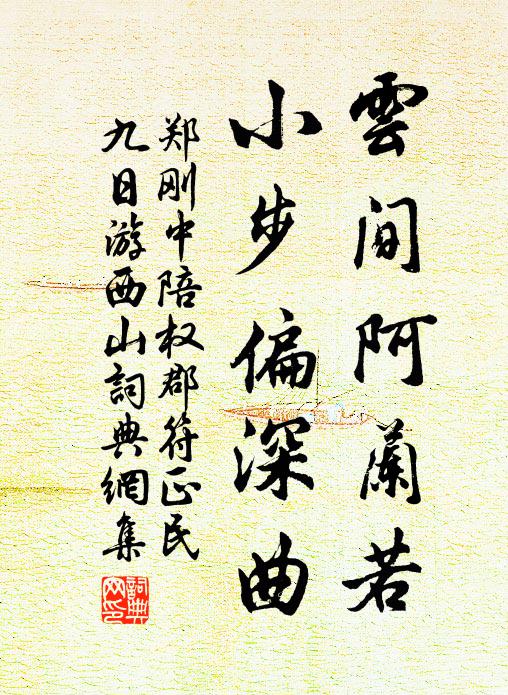 雲间阿蘭若
小步偏深曲
郑刚中陪权郡符正民
九日游西山詞典網集
詞典网印